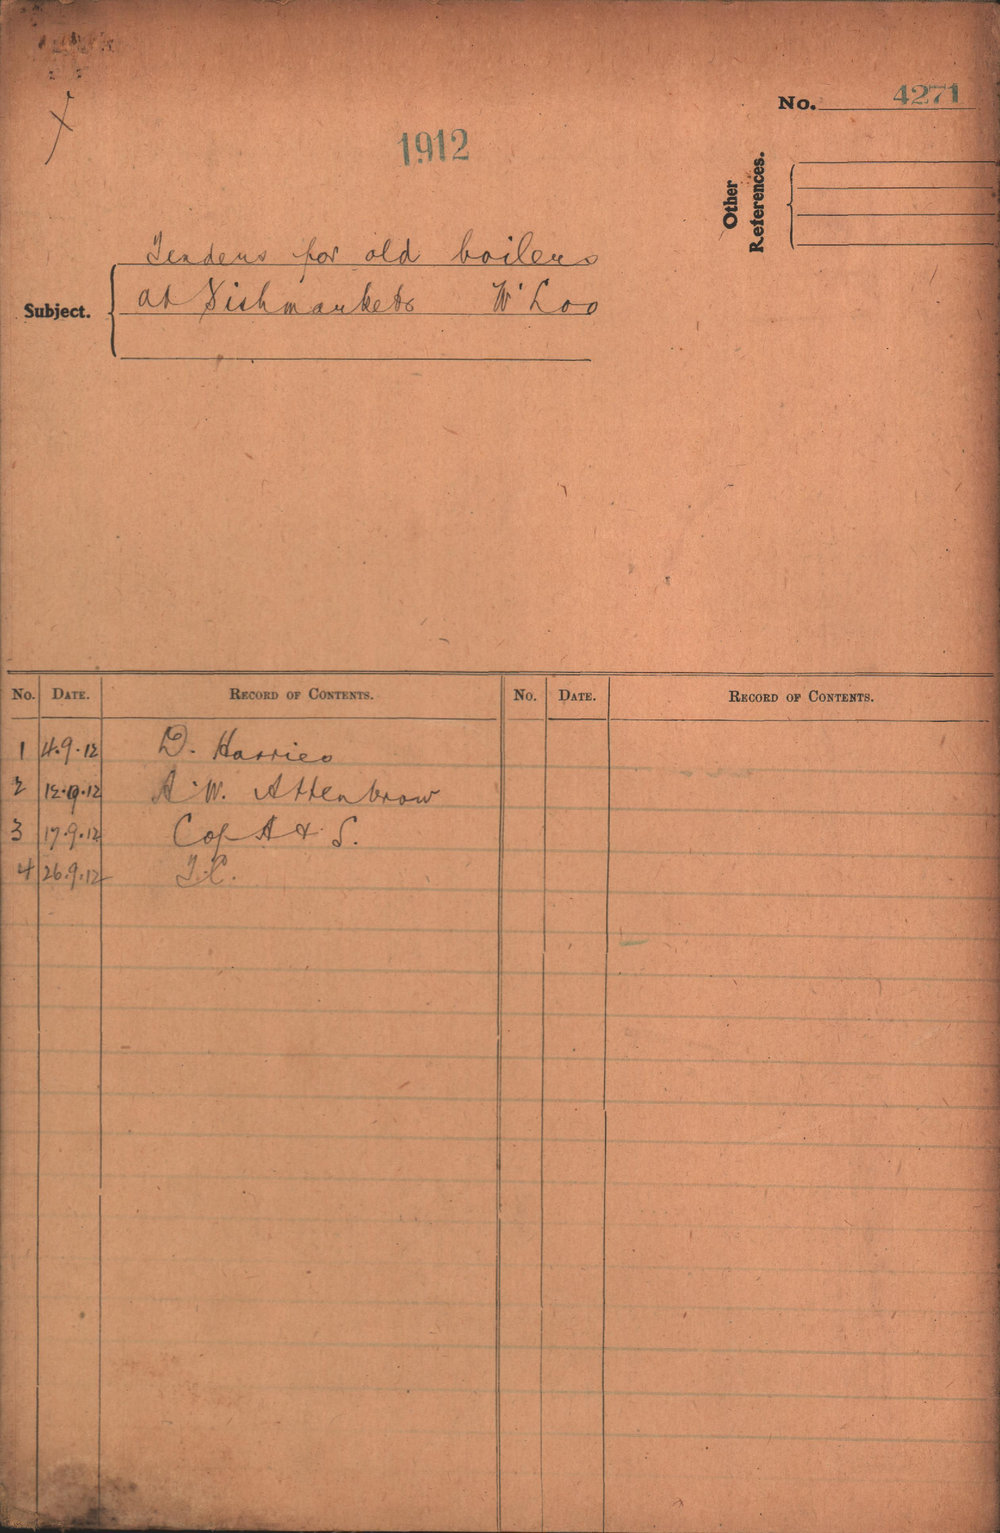 No. 4271
1912
Other
References.
Tenders for old boilers
Subject. at Fishmarkets W'Loo
No. Date. Record of Contents. No. Date. Record of Contents.
1 4.9.12 D. Harries
2 12.9.12 A.W. Attenbrow
3 17.9.12 Cop A & S.
4 26.9.12 T.C.